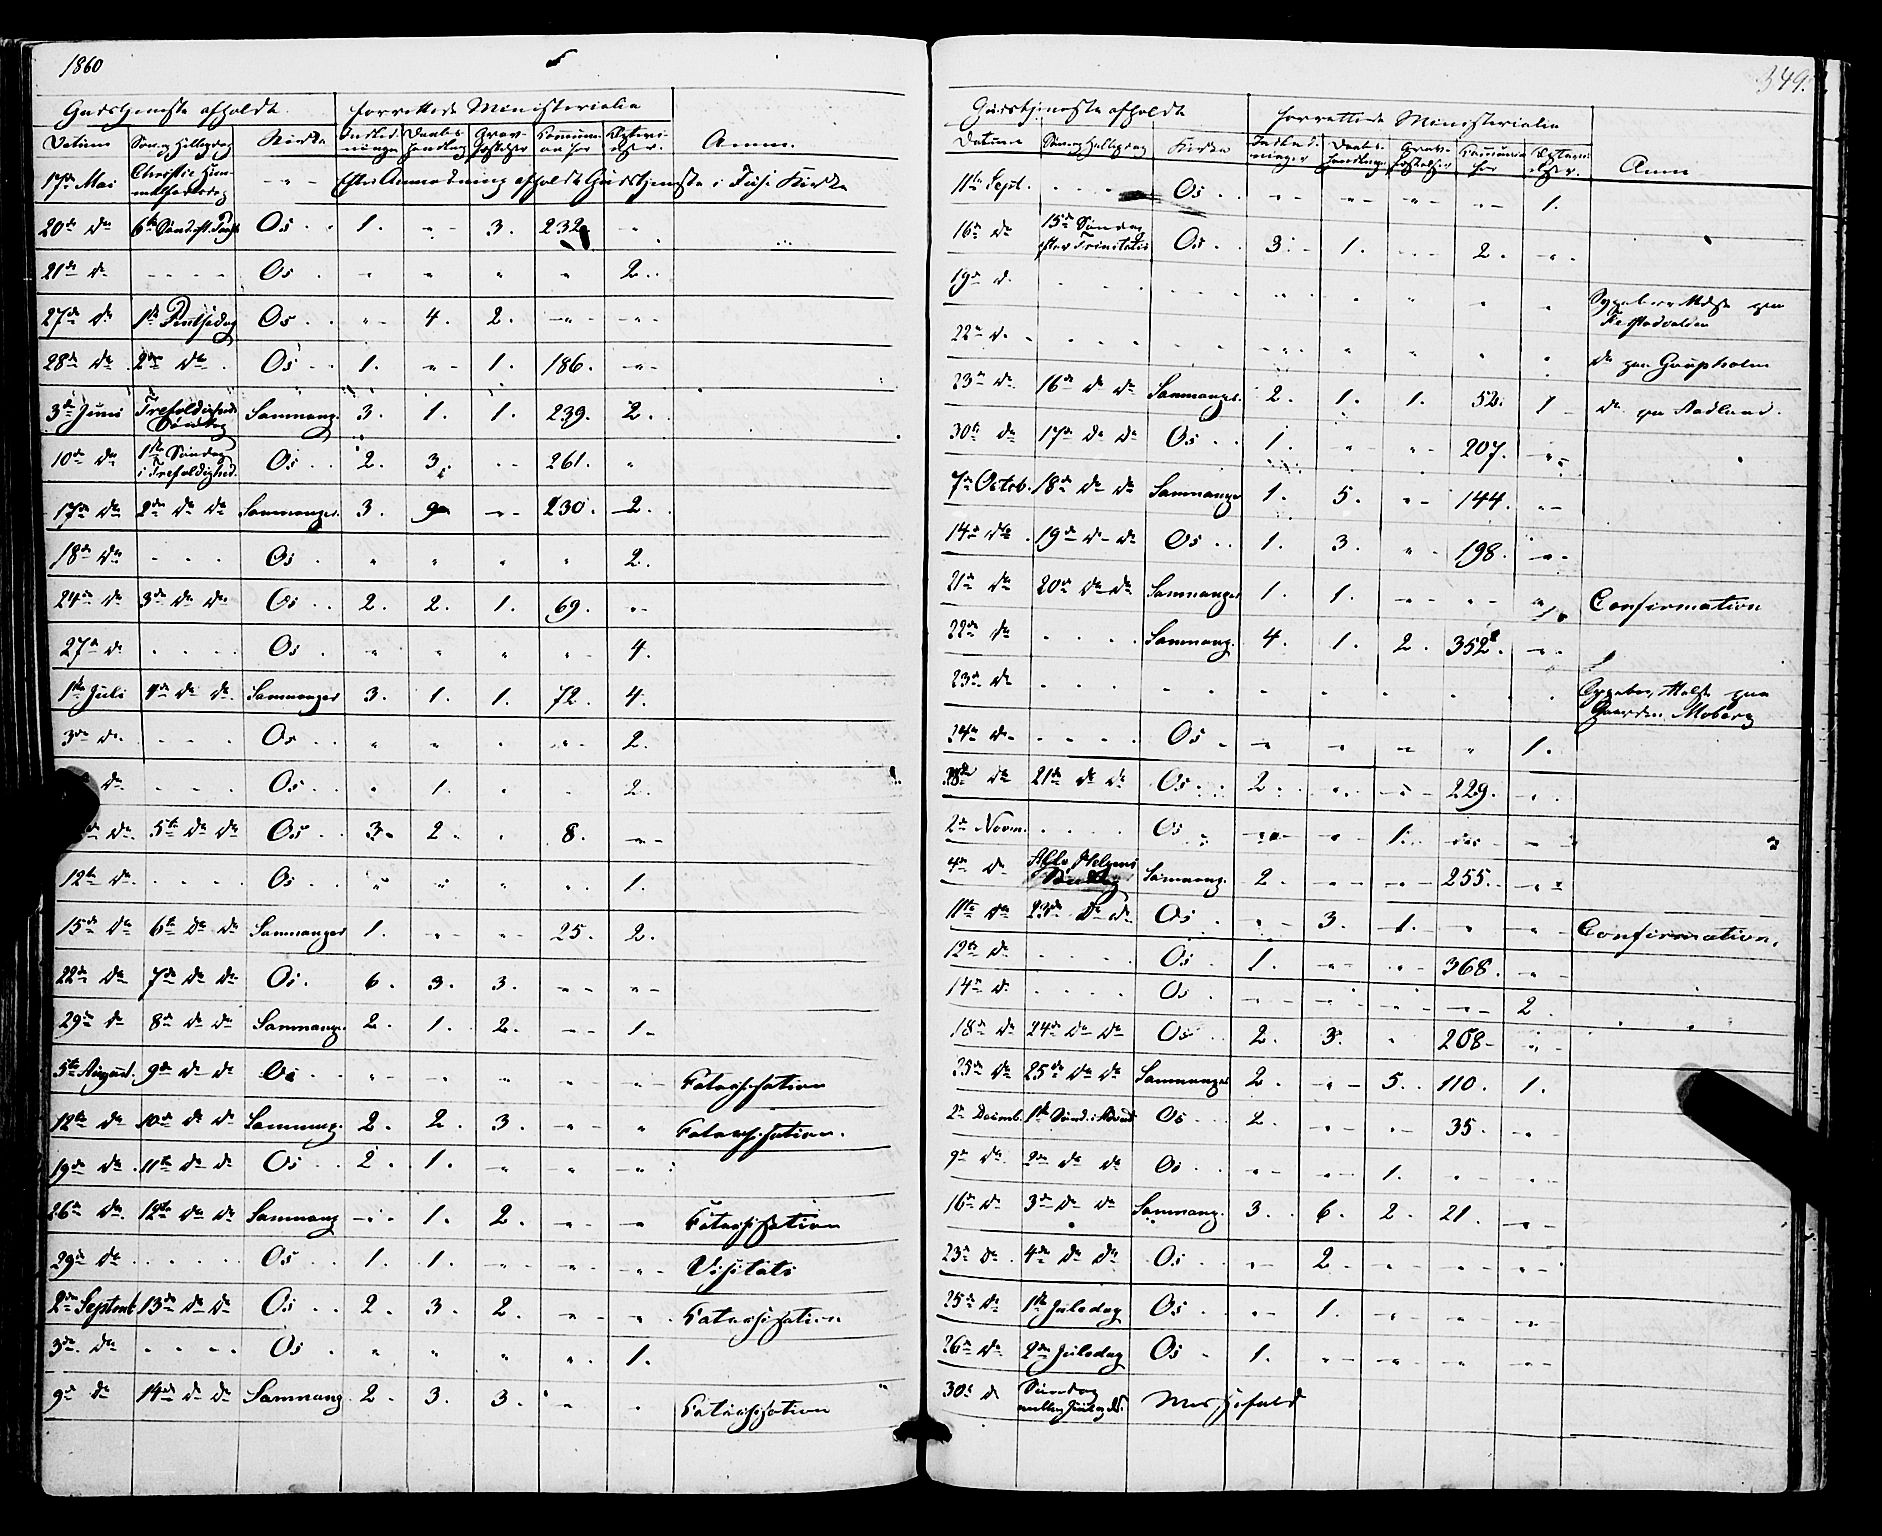 1860
Gudstjeneste afholdt | forrettede Ministerialia
Datum | Søn og Helligdag | Kirke | Indled-ninger | Daabs-handling | Grav-fæstelser | Communi-on for | Anm.
17de Mai | Christi Him-melfartsdag | " - | Efter Anmodning afholdt Gudstjeneste i Fuse Kirke
20de do | 6te Sønd. eft. Paaske | Os | 1. | " - | 3. | 232. | " .
21de d. | - - - - | Os | " | " | " | " | 2.
27de do | 1ste Pintsedag | Os | " - | 4. | 2. | - " - | - " -
28de do | 2den do | Os | 1. | " - | 1. | 186. | - " -
3de Juni | Trefoldigheds Søndag | Samnang. | 3. | 1. | 1. | 239. | 2.
10de do | 1ste Søndag i Trefoldighed. | Os | 2. | 3. | - - | 261. | "
17de do | 2den do do | Samnanger | 3. | 9 | " - | 230. | 2.
18de do | - - - | Os | " | " | " | " | 2.
24de do | 3de do do | Os | 2. | 2. | 1. | 69. | " -
27de d. | - - - - | Os | " | " | " | " | 4.
1ste Juli | 4de do do | Samnanger | 3. | 1. | 1. | 72. | 4.
3de do | - - - | Os | " | " | " | " | 2.
do | - - - | Os | " | 1. | " | " | 2.
do | 5te do do | Os | 3. | 2. | " | 8. | " -
12te do | - - - - | Os | " | " | " | " | 1.
15de do | 6te do do | Samnanger | 1. | " - | " - | 25. | 2.
22de do | 7de do do | Os. | 6. | 3. | 3. | " - | " -
29de do | 8de do do | Samnanger | 2. | 1. | 2. | - - | 1.
5te August. | 9de do do | Os | " - | " | " | " | " - | Catechisation
12te do | 10de do do | Samnang. | 2. | 2. | 3. | " - | " | Catechisation.
19de do | 11te do do | Os | 2. | 1. | " | " | " -
26de do | 12te do do | Samnang | - " - | 1. | 2. | " - | " | Catechisation
29de do | - - - - | Os | 1. | 1. | " - | " - | " - | Visitats
2den Septmb | 13de do do | Os | 2. | 3. | 2. | " - | " - | Catechisation
3de do | - - - - | Os | " | " | " | " - | 1.
9de do | 14de do do | Samnang | 2. | 3. | 3. | " - | " | Catechisation
349.
Gudstjeneste afholdt | forrettede Ministerialia
Datum | Søn og Helligdag | Kirke | Indled-ninger | Daabs-handlinger | Grav-fæstelser | Communion for | Anm
11te Sept. | - - - | Os | " - | " - | " - | " - | 1.
16de do | 15de Søndag efter Trinitatis | Os | 3. | 1. | - - | 2. | " -
19de d. | - - - - | " | " | " | " | " | Sygeberettelse paa
22de d. | - - - - | " | " | " | " | " | do paa
23de do | 16de do do | Samnanger | 2. | 1. | 1. | 52. | 1 | do paa Aadland.
30te do | 17de do do | Os | 1. | " | " - | 207. | " -
7de Octob. | 18de do do | Samnanger | 1. | 5. | " - | 144. | " -
14de do | 19de do do | Os | 1. | 3. | " - | 198. | " -
21de do | 20de do do | Samnanger | 1. | 1. | " - | " - | " | Confirmation
22de do | - - - - | Samnang. | 4. | 1. | 2. | 352. | " -
23de do | - - - - | " | " | " | " | " | Sygeberettelse paa
Gaarden Moberg
24de do | - - - - | Os | " | " | " | " | 1.
28de do | 21de do do | Os | 2. | " . | " - | 229. | " .
2de Novm. | - - - - | Os | " - | " - | 1. | " - | " -
4de d. | Alle Helgens Søndag | Samnang. | 2. | " - | " - | 255. | " -
11te do | 23de do do | Os | " - | 3. | 1. | " | " - | Confirmation.
12te do | - - - - | Os | 1. | " - | " - | 368. | " -
14de d. | - - - - | Os | " - | " - | " - | " - | 2.
18de do | 24de do do | Os | 2. | 3. | " | 208. | " -
25de do | 25de do do | Samnanger | 2. | " - | 5. | 110. | 1.
2den Decemb. | 1ste Sønd. i Advent | Os | 2. | " - | " - | 35. | " -
9de do | 2den do do | Os | " - | " - | 1. | " | " -
16de d. | 3de do do | Samnang. | 3. | 6. | 2. | 21. | " -
23de do | 4de do do | Os | " - | 2. | " - | " - | " -
25de do | 1ste Juledag | Os | " - | 1. | " - | " - | " -
26de do | 2den Juledag | Os | 1. | " - | " - | " - | " -
30te d. | Søndag | Messefald